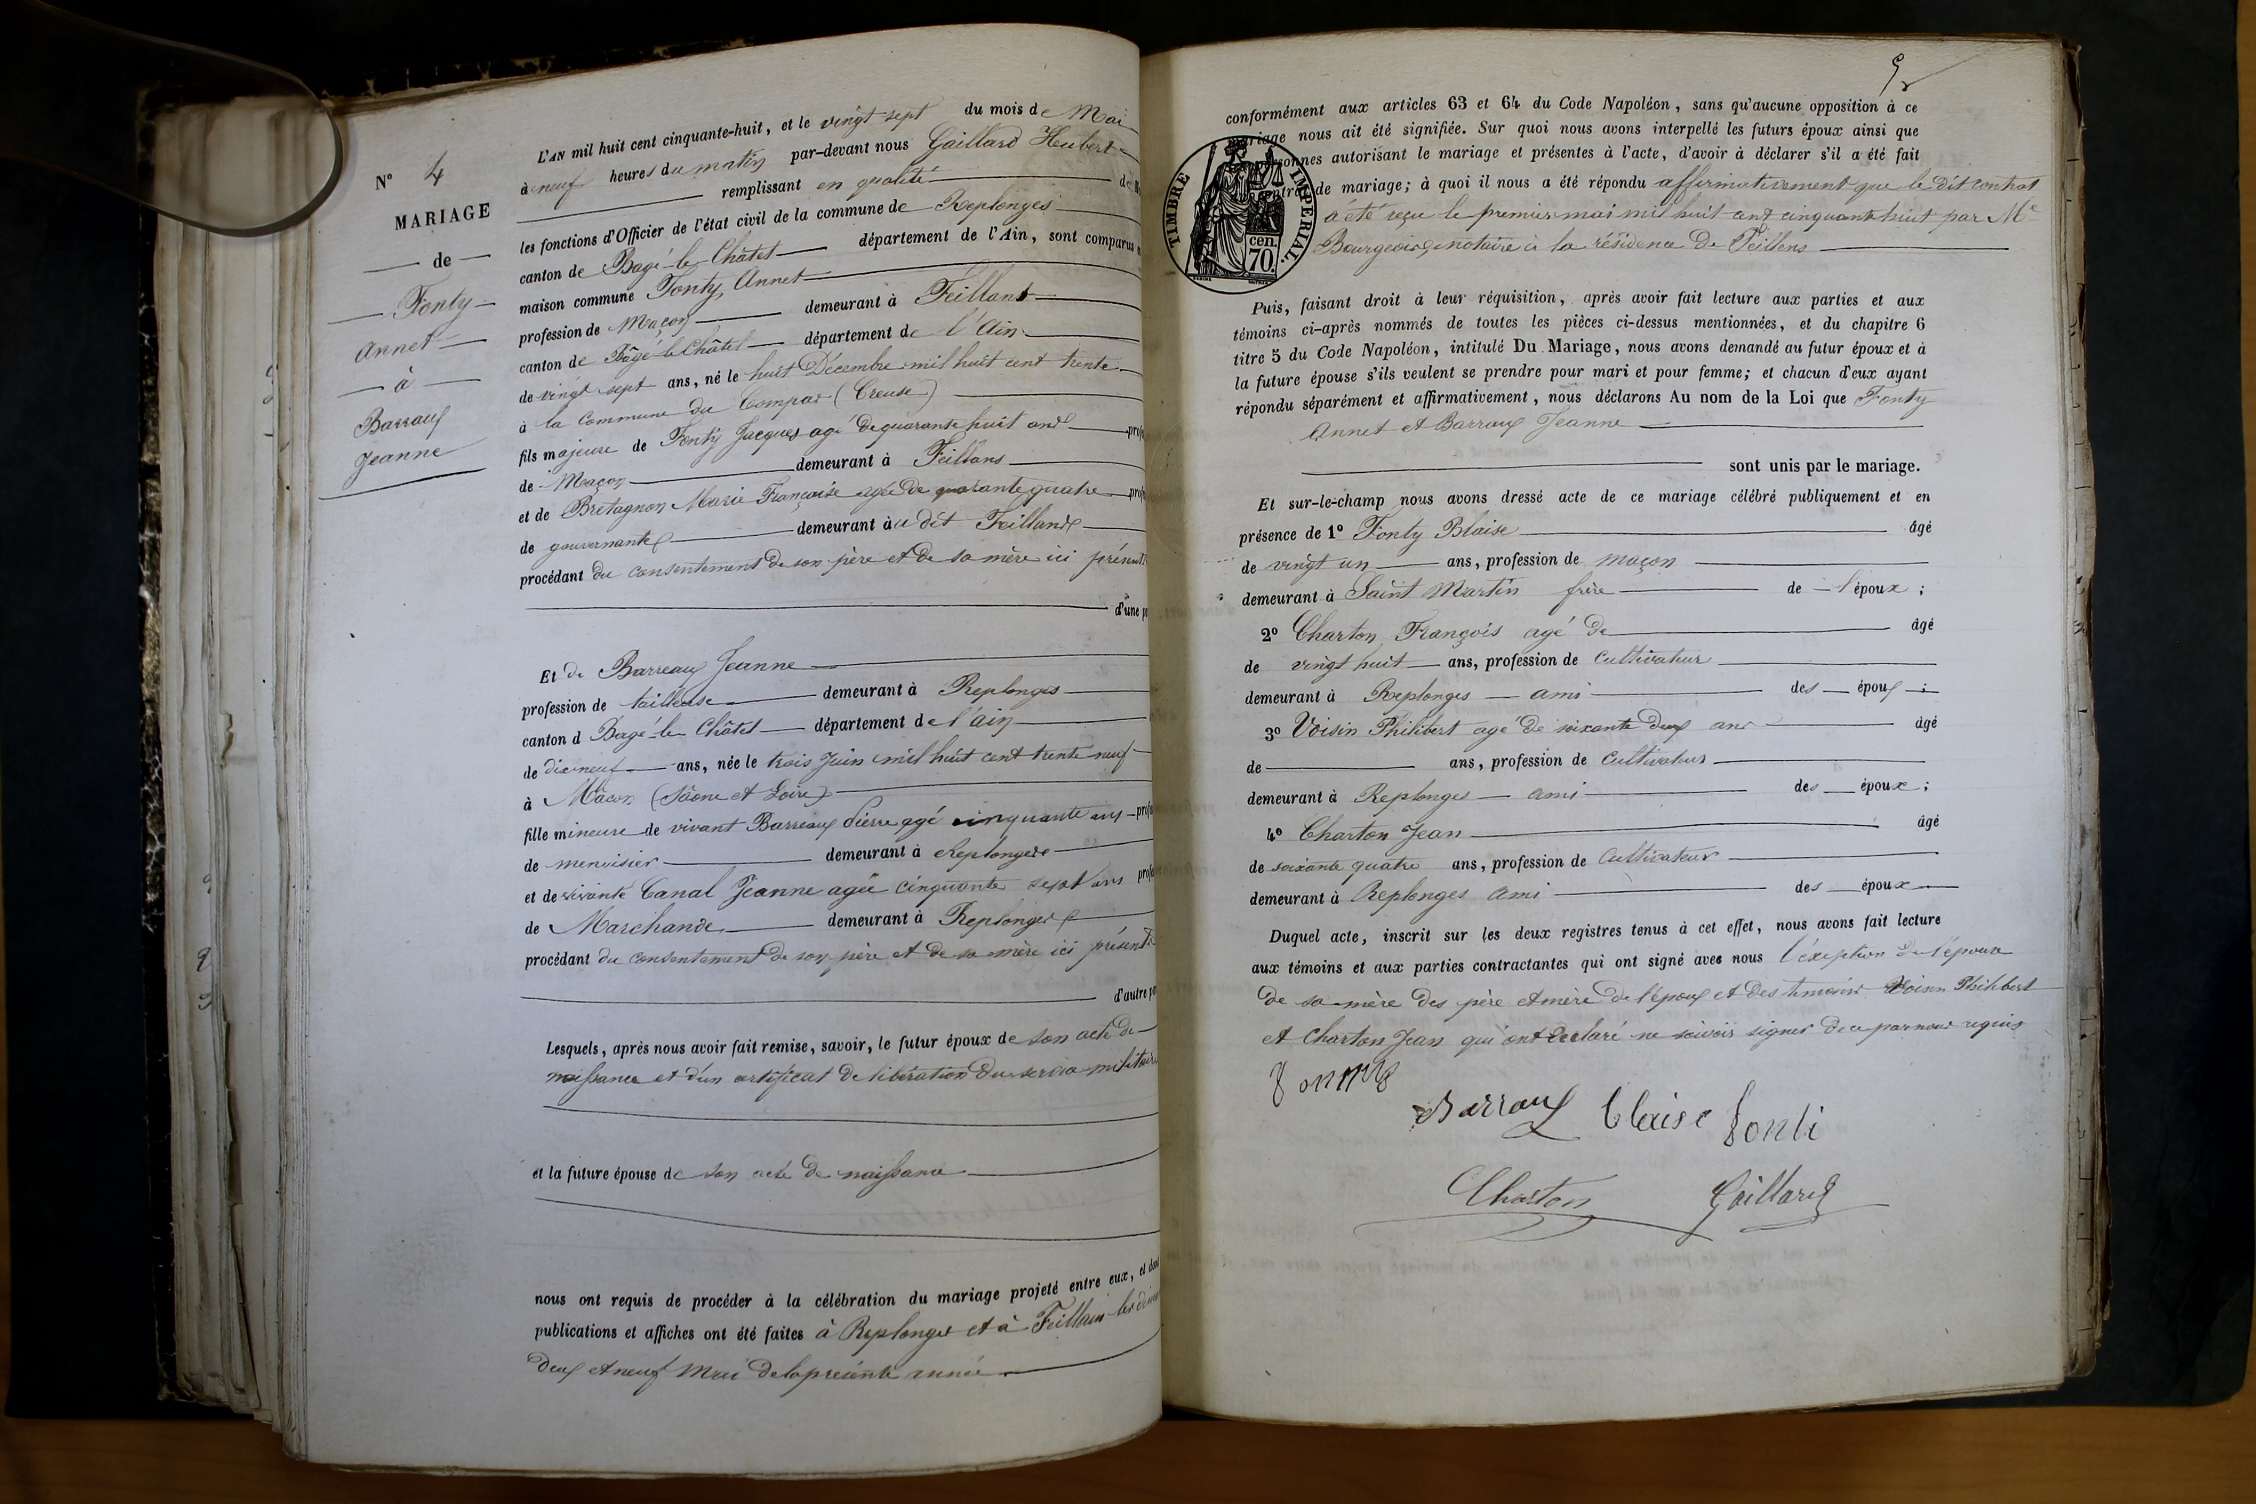 N° 4
MARIAGE
de
Fonty
Annet
à
Barraux
Jeanne
L'AN mil huit cent cinquante-huit, et le vingt sept du mois de Mai
à neuf heures du matin par-devant nous Gaillard Hubert
remplissant en qualité de
les fonctions d'Officier de l'état civil de la commune de Replonges
canton de Bagé-le-Châtel département de l'Ain, sont comparus
maison commune Fonty, Annet
profession de Maçon demeurant à Feillans
canton de Bâgé-le-Châtel département de l'Ain
de vingt sept ans, né le huit Décembre mil huit cent trente
à la commune du Compas (Creuse)
fils majeure de Fonty Jacques agé de quarante huit ans prof
de Maçon demeurant à Feillans
et de Bretagnon Marie Françoise agée de quarante quatre prof
de gouvernante demeurant au dit Feillans
procédant du consentement de son père et de sa mère ici présents
d'une p
Et de Barreaux Jeanne
profession de tailleuse demeurant à Replonges
canton d Bagé-le-Châtel département de l'ain
de dix neuf ans, née le trois Juin mil huit cent trente neuf
à Mâcon (Sâone et Loire)
fille mineure de vivant Barreaux Pierre agé cinquante ans prof
de menuisier demeurant à Replonges
et de vivante Canal Jeanne agée cinquante sept ans prof
de Marchande demeurant à Replonges
procédant du consentement de son père et de sa mère ici présents
d'autre p
Lesquels, après nous avoir fait remise, savoir, le futur époux de son acte de
naissance et d'un certificat de libération du service militaire
et la future épouse de son acte de naissance
nous ont requis de procéder à la célébration du mariage projeté entre eux, et dont
publications et affiches ont été faites à Replonges et à Feillans les
deux et neuf Mai de la présente année
conformément aux articles 63 et 64 du Code Napoléon, sans qu'aucune opposition à ce
mariage nous ait été signifiée. Sur quoi nous avons interpellé les futurs époux ainsi que
personnes autorisant le mariage et présentes à l'acte, d'avoir à déclarer s'il a été fait
contrat de mariage; à quoi il nous a été répondu affirmativement que le dit contrat
a été reçu le premier mai mil huit cent cinquante huit par Me
Bourgeois, notaire à la résidence de Feillens
TIMBRE IMPERIAL
70 cen.
Puis, faisant droit à leur réquisition, après avoir fait lecture aux parties et aux
témoins ci-après nommés de toutes les pièces ci-dessus mentionnées, et du chapitre 6
titre 5 du Code Napoléon, intitulé Du Mariage, nous avons demandé au futur époux et à
la future épouse s'ils veulent se prendre pour mari et pour femme; et chacun d'eux ayant
répondu séparément et affirmativement, nous déclarons Au nom de la Loi que Fonty
Annet et Barraux Jeanne
sont unis par le mariage.
Et sur-le-champ nous avons dressé acte de ce mariage célébré publiquement et en
présence de 1° Fonty Blaise âgé
de vingt un ans, profession de maçon
demeurant à Saint Martin frère de l'époux;
2° Charton François agé de âgé
de vingt huit ans, profession de Cultivateur
demeurant à Replonges ami des époux;
3° Voisin Philibert agé de soixante deux ans âgé
de ans, profession de Cultivateur
demeurant à Replonges ami des époux;
4° Charton Jean âgé
de soixante quatre ans, profession de Cultivateur
demeurant à Replonges ami des époux
Duquel acte, inscrit sur les deux registres tenus à cet effet, nous avons fait lecture
aux témoins et aux parties contractantes qui ont signé avec nous l'éxeption de l'épouse
de sa mère des père et mère de l'époux et des témoins Voisin Philibert
et Charton Jean qui ont déclaré ne savoir signer de ce par nous requis
Barraux Blaise fonti
Charton Gaillard